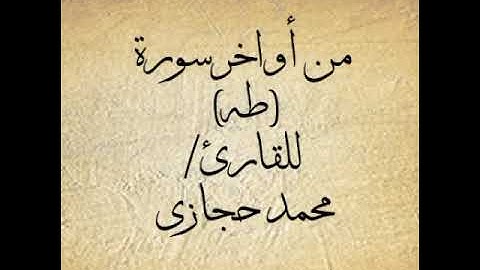 من أواخر سورة
(طه)
للقارئ/
محمد حجازى